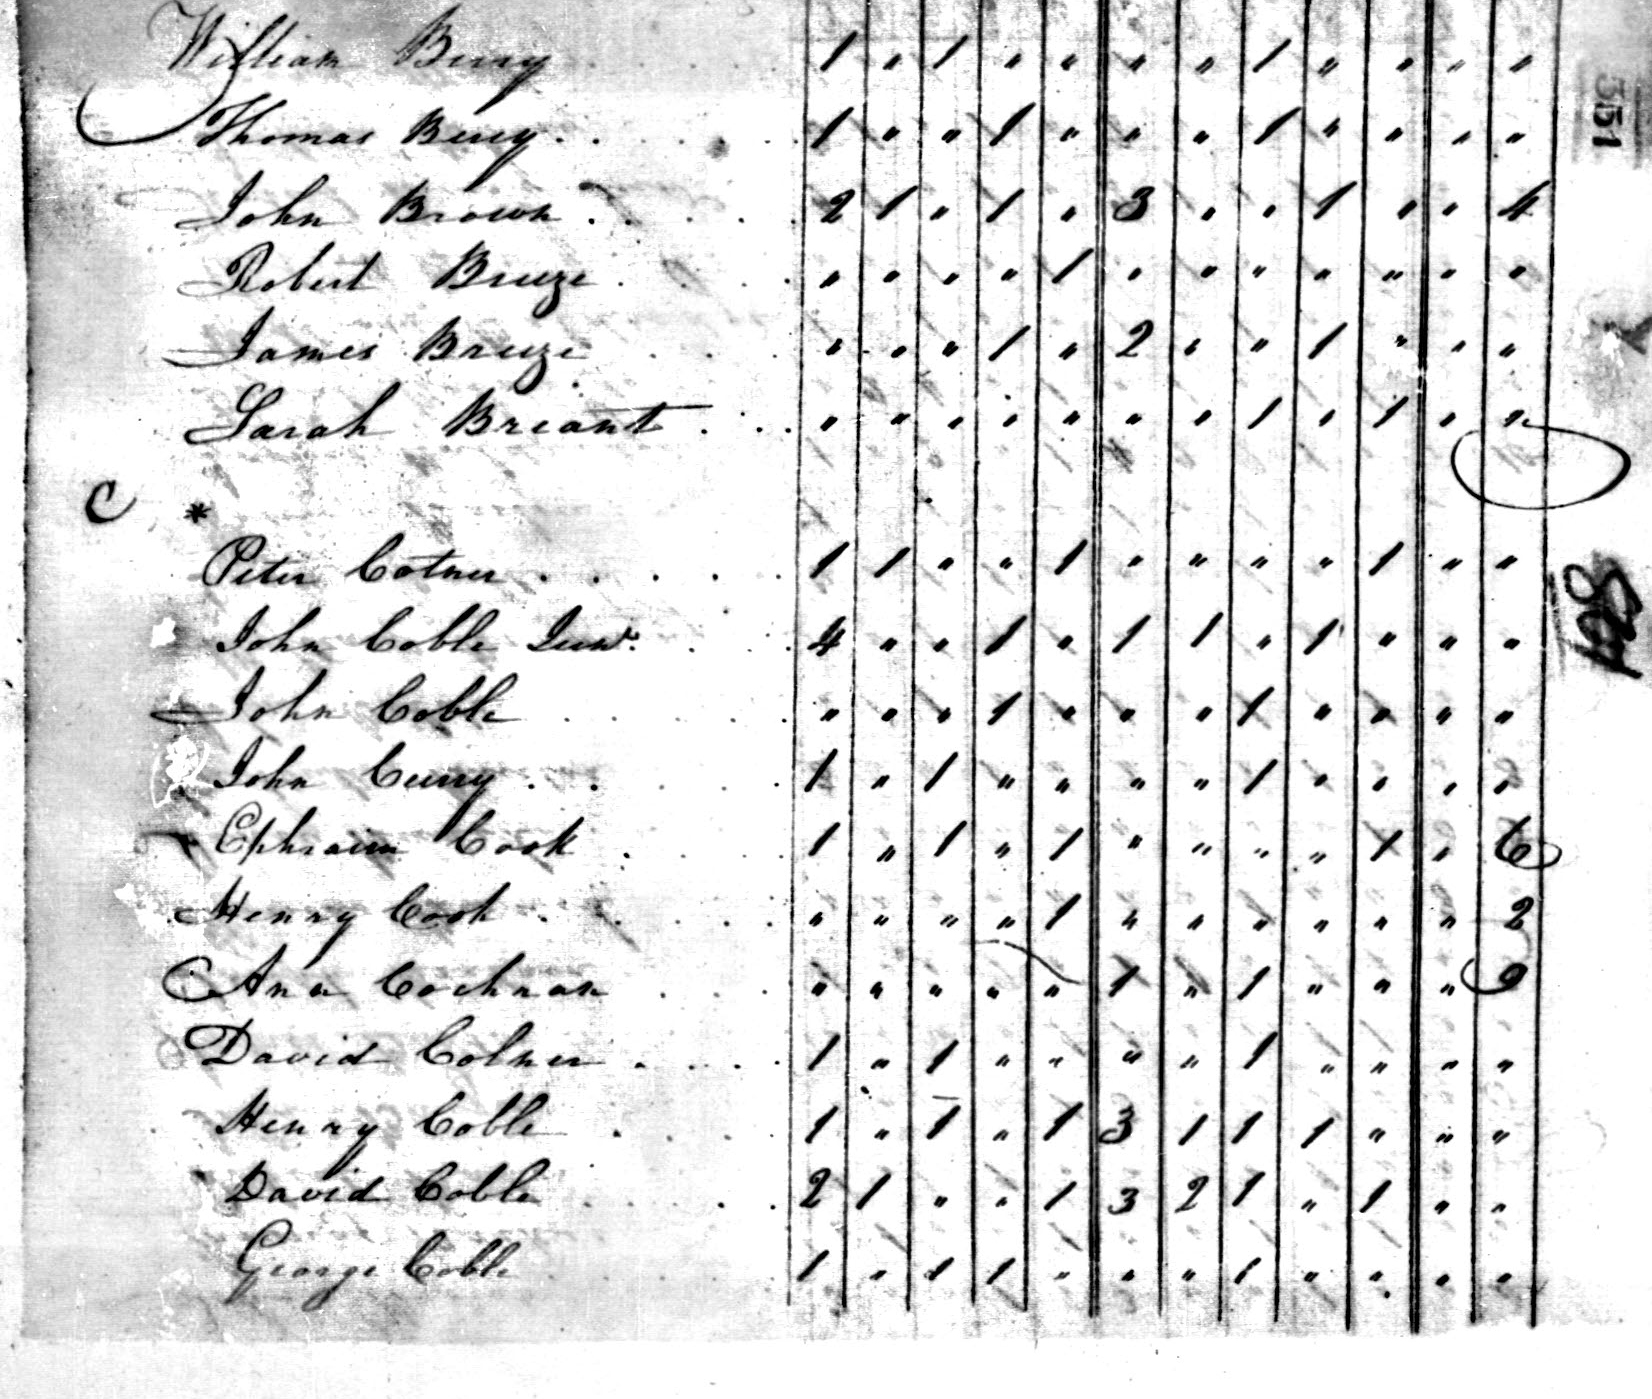 William Berry . . . . 1 " 1 " " " " 1 " " " "
551
Thomas Berry . . . . 1 " " 1 " " " 1 " " " "
John Brown . . . . 2 1 " 1 " 3 " " 1 " " 4
Robert Breeze . . . . " " " " 1 " " " " " " "
James Breeze . . . . " " " 1 " 2 " " 1 " " "
Sarah Breant . . . " " " " " " " 1 " 1 " "
C *
Peter Cotner . . . . 1 1 " " 1 " " " " 1 " "
John Coble Junr. . . . 4 " " 1 " 1 1 " 1 " " "
John Coble . . . . " " " 1 " " " 1 " " " "
John Curry . . . . 1 " 1 " " " " 1 " " " "
Ephraim Cook . . . . 1 " 1 " 1 " " " " 1 " 6
Henry Cook . . . . " " " " 1 " " " " " " 2
Ann Cochran . . . " " " " " 1 " 1 " " " 9
David Cotner . . . . 1 " 1 " " " " 1 " " " "
Henry Coble . . . . 1 " 1 " 1 3 1 1 1 " " "
David Coble . . . . 2 1 " " 1 3 2 1 " 1 " "
George Coble . . . . 1 " 1 1 " " " 1 " " " "